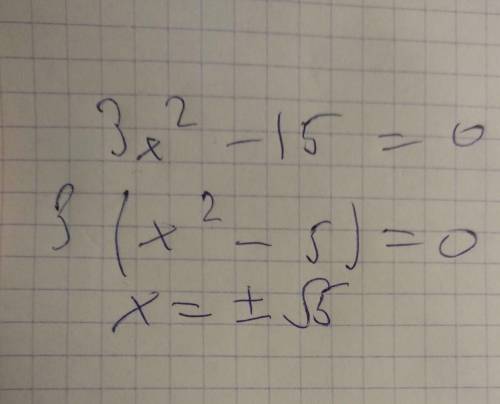 3x² - 15 = 0
3 (x² - 5) = 0
x = ± √5